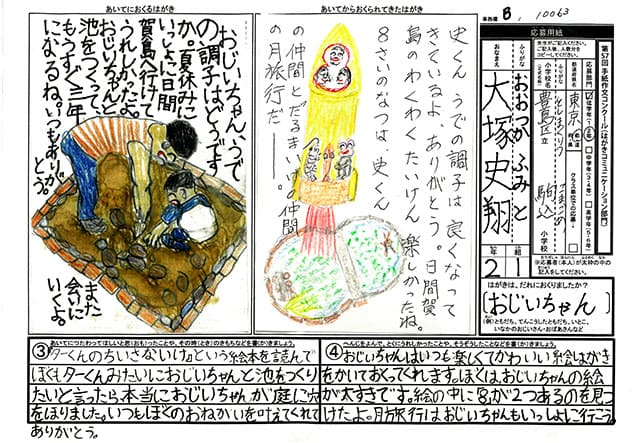 あいてにおくるはがき
おじいちゃん、うで
の調子はどうです
か。夏休みに
いっしょに日間
賀島へ行けて
うれしかったよ。
おじいちゃんと
池をつくって、
もうすぐ三年
になるね。いつもありが
とう。
また
会いに
いくよ。
あいてからおくられてきたはがき
史くん うでの調子は良くなって
きているよ、ありがとう。日間賀
島のわくわくたいけん 楽しかったね。
8さいのなつは、史くん
の仲間とだるまいけの仲間
の月旅行だーー。
B、10063
応募用紙
第57回 手紙作文コンクール(はがきコミュニケーション部門)
ふりがな
おおつか ふみと
おなまえ
大塚史翔
東京
豊島区立
駒込
小学校
2年
1組
はがきは、だれにおくりましたか?
おじいちゃん
(例)ともだち、てんこうしたともだち、いとこ、
いなかのおじいさん・おばあさんなど
③ターくんのちいさないけ。という絵本を読んで
ぼくも、ターくんみたいにおじいちゃんと池をつくり
たいと言ったら、本当におじいちゃんが庭に穴
をほりました。いつもぼくのおねがいを叶えてくれて
ありがとう。
④おじいちゃんはいつも楽しくてかわいい絵はがき
をかいておくってくれます。ぼくは、おじいちゃんの絵
が大すきです。絵の中に8が2つあるのを見つ
けたよ。月旅行はおじいちゃんもいっしょに行こう。